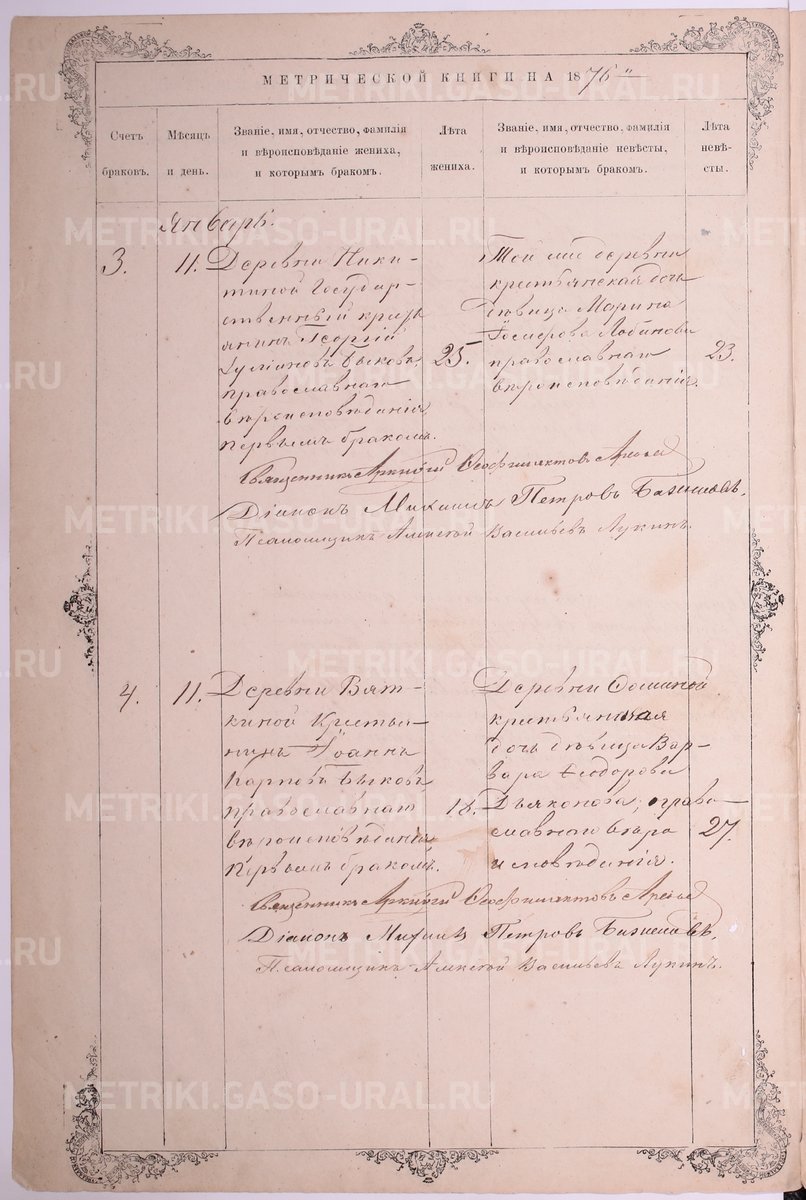 МЕТРИЧЕСКОЙ КНИГИ НА 1876
Счетъ браковъ.
Мѣсяцъ и день.
Званіе, имя, отчество, фамилія
и вѣроисповѣданіе жениха,
и которымъ бракомъ.
Лѣта жениха.
Званіе, имя, отчество, фамилія
и вѣроисповѣданіе невѣсты,
и которымъ бракомъ.
Лѣта невѣ-
сты.
Январь.
3.
11.
Деревни Ники-
тиной Государ-
ственный кресть
янинъ Георгій
Быковъ,
православнаго
вѣроисповѣданія
первымъ бракомъ.
25.
Той же деревни
крестьянская дочь
дѣвица Марина
Лобанова
православнаго
вѣроисповѣданія.
23.
Священникъ Ѳеофилактовъ
Діаконъ Михаилъ Петровъ
Псаломщикъ Алексѣй Васильевъ Лукинъ.
4.
11.
Деревни Вят-
киной Кресть-
нинъ Іоаннъ
Карповъ Быковъ
православнаго
вѣроисповѣданія
первымъ бракомъ.
18.
Деревни
крестьянская
дочь дѣвица Вар-
вара Ѳеодорова
Дьяконова, право-
славнаго вѣро
исповѣданія.
27.
Священникъ Ѳеофилактовъ
Діаконъ Михаилъ Петровъ
Псаломщикъ Алексѣй Васильевъ Лукинъ.
METRIKI.GASO-URAL.RU